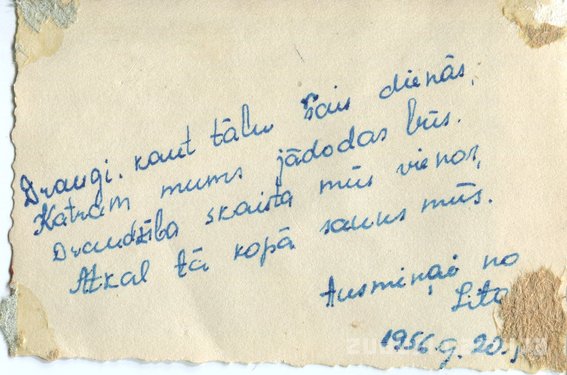 Draugi, kaut tālu šais dienās,
Katram mums jādodas būs.
Draudzība skaista mūs vienos,
Atkal tā kopā sauks mūs.
Ausmiņai no
Lita
1956.g. 20.